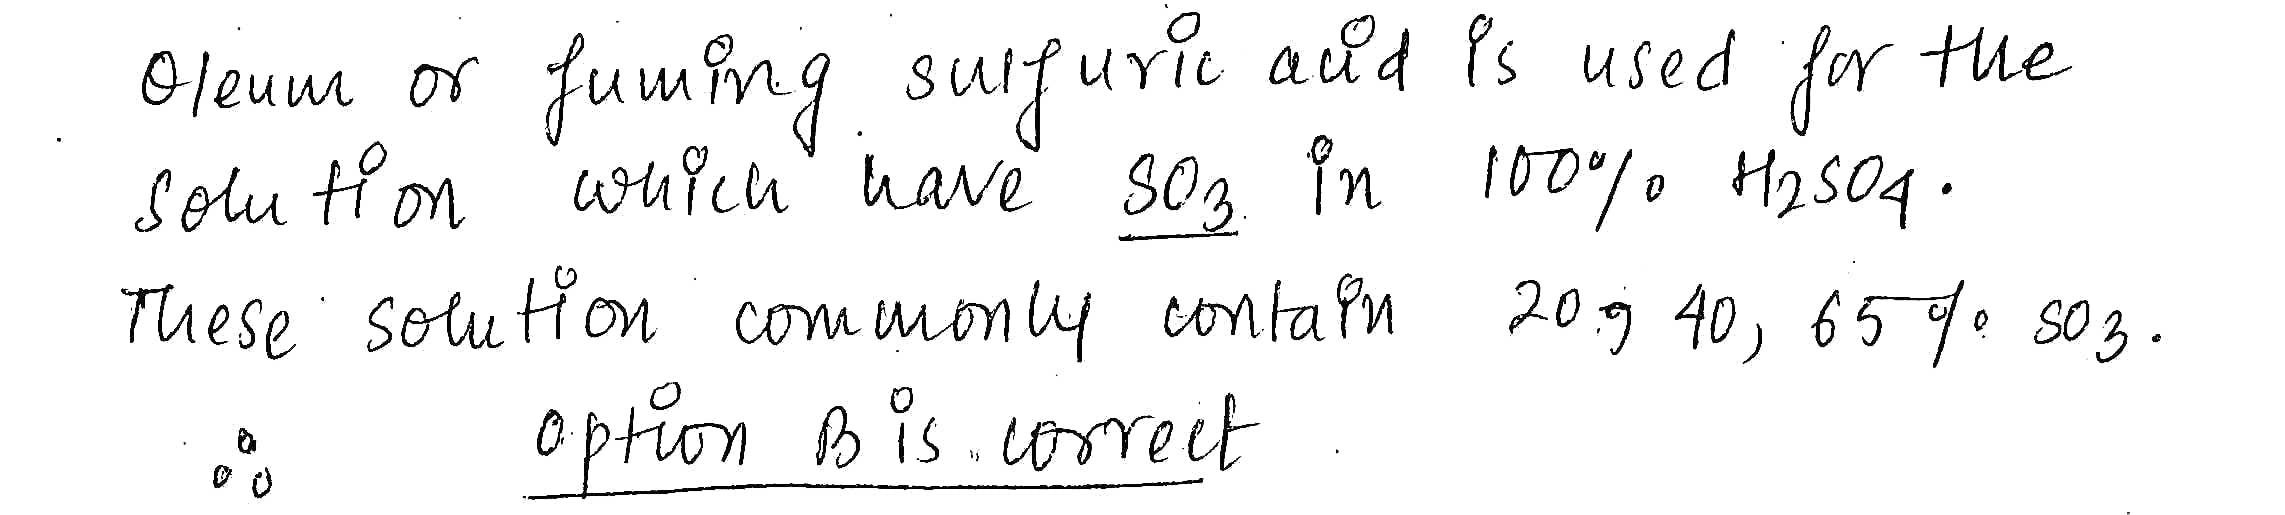 Oleum or fuming sulfuric acid is used for the
solution which have SO3 in 100% H2SO4.
These solution commonly contain 20, 40, 65% SO3.
∴ option B is correct